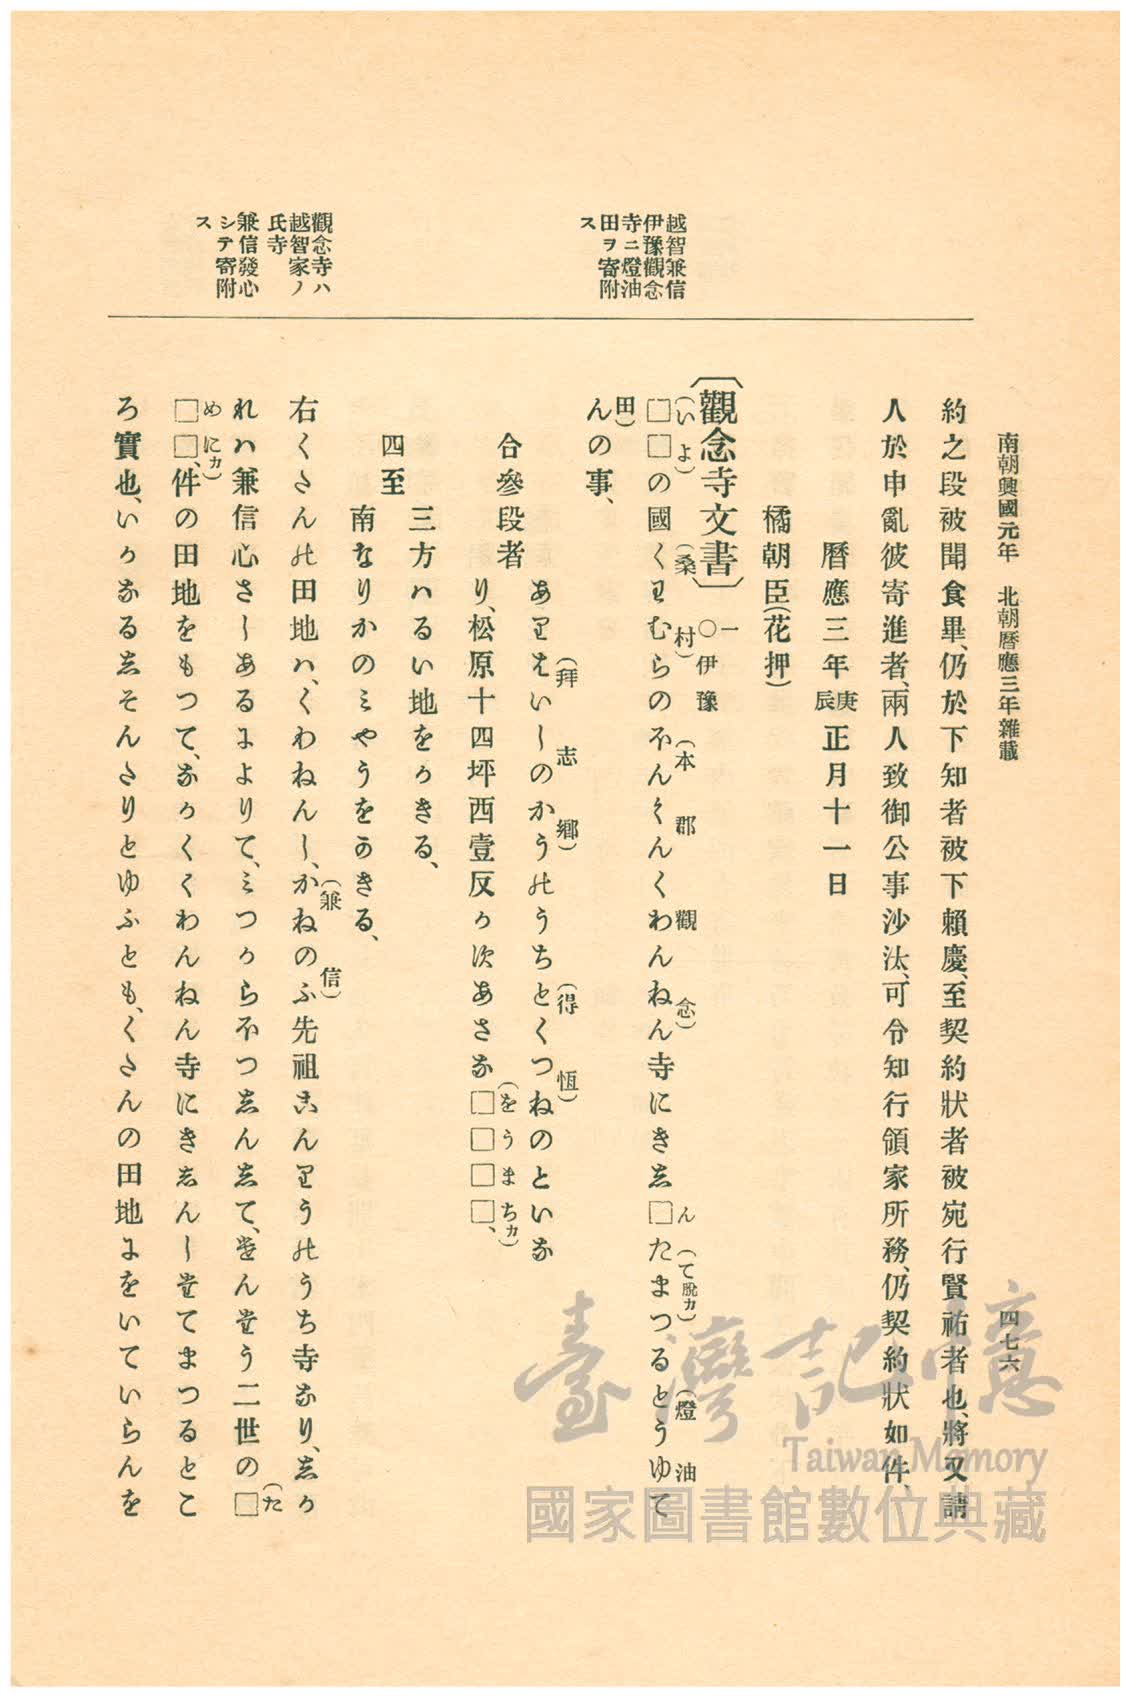 南朝興國元年　北朝曆應三年雜載
四七六
約之段被聞食畢、仍於下知者被下賴慶、至契約狀者被宛行賢祐者也、將又請
人於申亂彼寄進者、兩人致御公事沙汰、可令知行領家所務、仍契約狀如件、
曆應三年庚辰正月十一日
橘朝臣（花押）
〔觀念寺文書〕一○伊豫
越智兼信
伊豫觀念
寺ニ燈油
田ヲ寄附
ス
（いよ）（桑村）（本郡觀念）ん（て脫カ）（燈油
□□の國くわむらのほんくんくわんねん寺にきし□たまつるとうゆて
田）
んの事、
合參段者
（拜志鄉）（得恆）
ありはいしのかうのうちとくつねのといな
（をうまちカ）
り、松原十四坪西壹反か次あさな□□□□、
四至
三方ハるい地をかきる、
南なりかのミやうをかきる、
觀念寺ハ
越智家ノ
氏寺
（兼信）
右くさんの田地ハ、くわねんし、かねのふ先祖こんりうのうち寺なり、しか
兼信發心
シテ寄附
ス
（た
れハ兼信心さしあるによりて、ミつからほつしんして、せんせう二世の□
めにカ）
□□、件の田地をもつて、なかくくわんねん寺にきしんしせてまつるとこ
ろ實也、いかなるしそんたりとゆふとも、くさんの田地にをいていらんを
臺灣記憶
Taiwan Memory
國家圖書館數位典藏